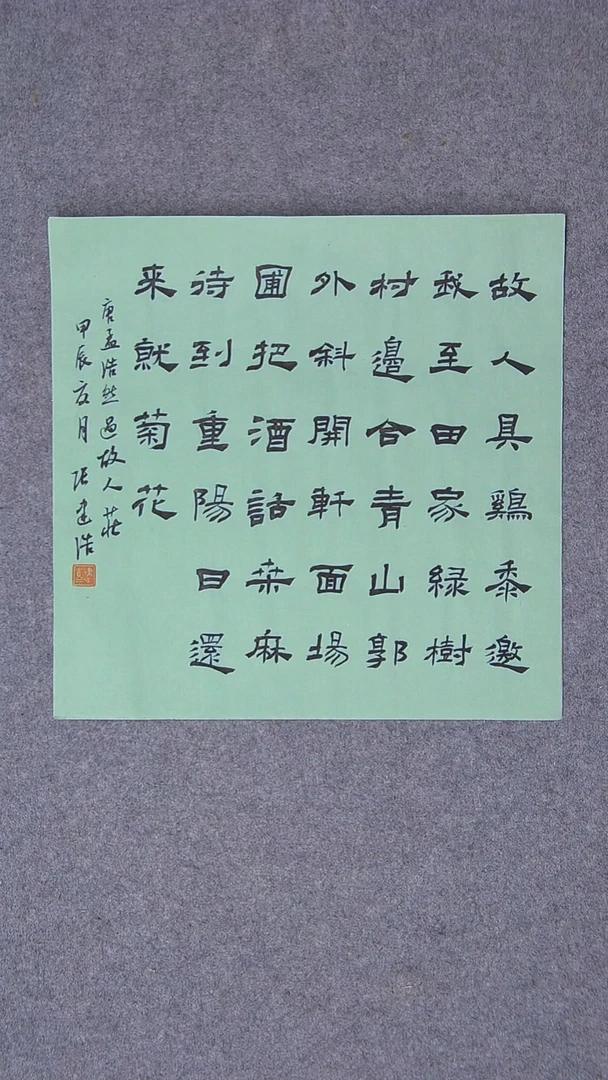 故人具鷄黍邀
我至田家緑樹
村邊合青山郭
外斜開軒面場
圃把酒話桒麻
待到重陽日還
来就菊花
唐孟浩然過故人莊
甲辰夏月張建浩